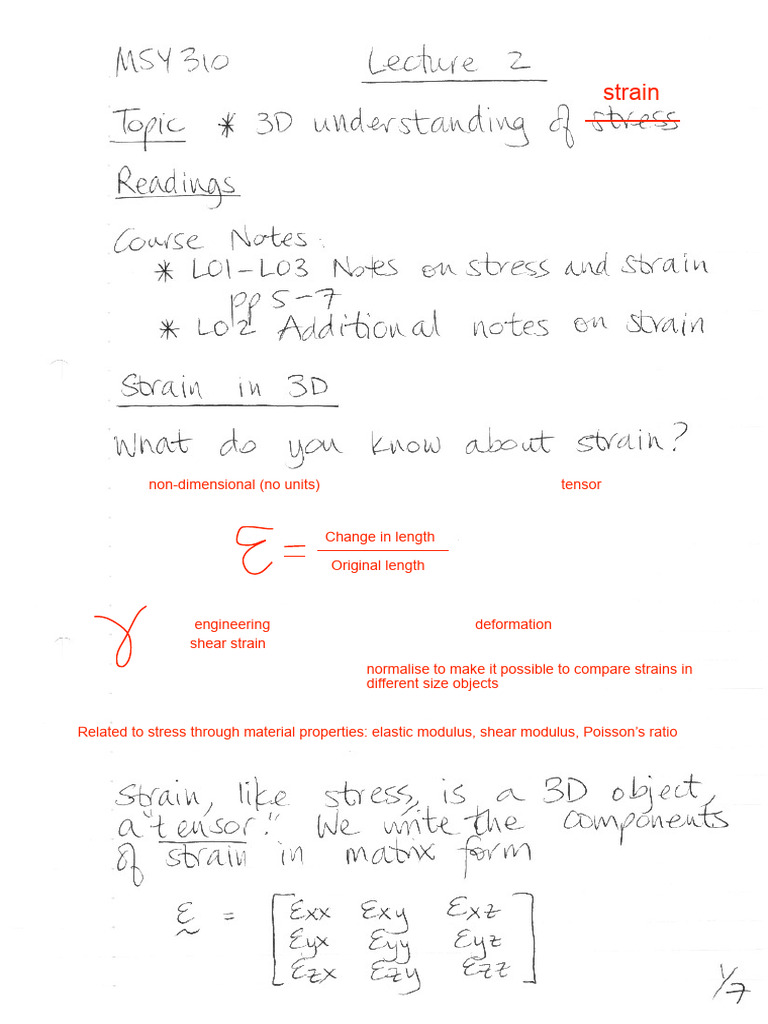 MSY310 Lecture 2
strain
Topic * 3D understanding of stress
Readings
Course Notes:
* L01-L03 Notes on stress and strain
pp 5-7
* L02 Additional notes on strain
Strain in 3D
What do you know about strain?
non-dimensional (no units) tensor
Ɛ = Change in length
Original length
γ engineering deformation
shear strain
normalise to make it possible to compare strains in
different size objects
Related to stress through material properties: elastic modulus, shear modulus, Poisson's ratio
Strain, like stress, is a 3D object,
a "tensor." We write the components
of strain in matrix form
Ɛ = [ Ɛxx Ɛxy Ɛxz
Ɛyx Ɛyy Ɛyz
Ɛzx Ɛzy Ɛzz ]
1/7